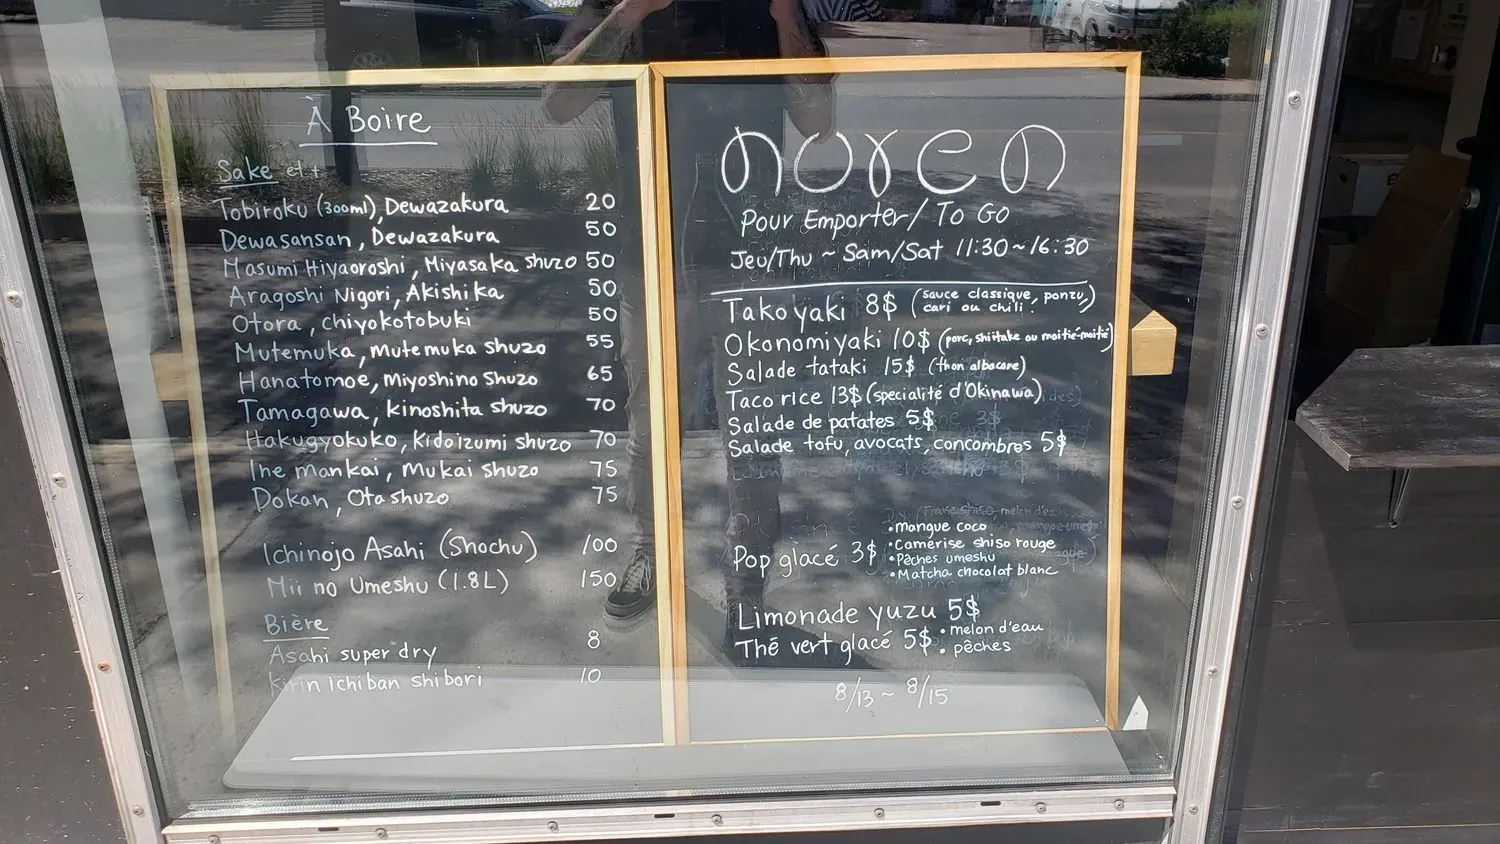 À Boire
Sake et +
Tobiroku (300ml), Dewazakura 20
Dewasansan, Dewazakura 50
Masumi Hiyaoroshi, Miyasaka shuzo 50
Aragoshi Nigori, Akishika 50
Otora, chiyokotobuki 50
Mutemuka, Mutemuka shuzo 55
Hanatomoe, Miyoshino Shuzo 65
Tamagawa, kinoshita shuzo 70
Hakugyokuko, Kidoizumi shuzo 70
Ine mankai, Mukai Shuzo 75
Dokan, Ota shuzo 75
Ichinojo Asahi (Shochu) 100
Mii no Umeshu (1.8L) 150
Bière
Asahi super dry 8
Kirin Ichiban shibori 10
noren
Pour Emporter / To Go
Jeu/Thu ~ Sam/Sat 11:30~16:30
Takoyaki 8$ (sauce classique, ponzu,
cari ou chili)
Okonomiyaki 10$ (porc, shiitake ou moitié-moitié)
Salade tataki 15$ (thon albacore)
Taco rice 13$ (specialité d'Okinawa)
Salade de patates 5$
Salade tofu, avocats, concombres 5$
Pop glacé 3$
• mangue coco
• Camerise shiso rouge
• Pêches umeshu
• Matcha chocolat blanc
Limonade yuzu 5$
Thé vert glacé 5$
• melon d'eau
• pêches
8/13 ~ 8/15